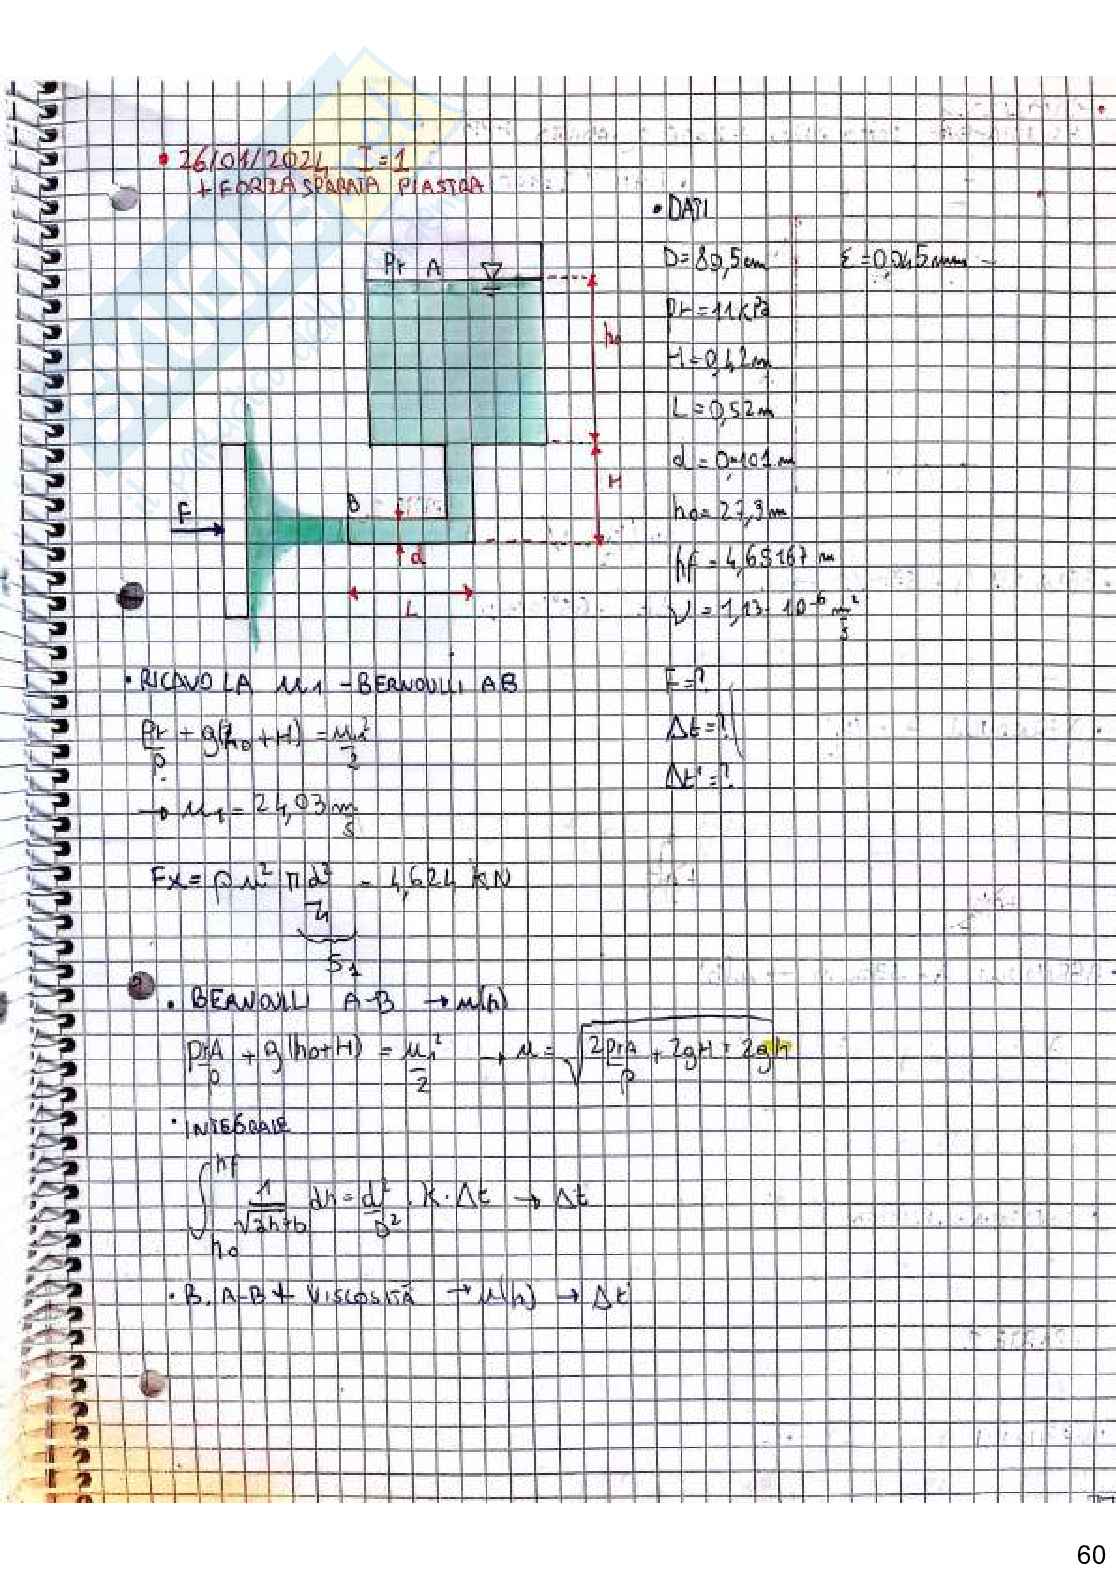 • 26/01/2024 I=1
+ FORZA SPARATA PIASTRA
• DATI
D=80,5cm ε=0,045mm
Pr=11kPa
H=0,42m
L=0,52m
d=0,101m
h0=27,3m
hf=4,65167 m
ν=1,13·10^-6 m²/s
F=?
Δt=?
Δt'=?
Pr A
h0
H
B
F
d
L
• RICAVO LA u1 - BERNOULLI AB
Pr/ρ + g(h0+H) = u1²/2
→ u1 = 24,03 m/s
Fx = ρ u² πd²/4 = 4,624 kN
S1
• BERNOULLI A-B → u(h)
PrA/ρ + g(h0+H) = u1²/2 → u = √(2PrA/ρ + 2gH + 2gh)
• INTEGRALE
∫h0^hf 1/√(ah+b) dh = d²/D² · K · Δt → Δt
• B. A-B + VISCOSITÀ → u(h) → Δt'
60